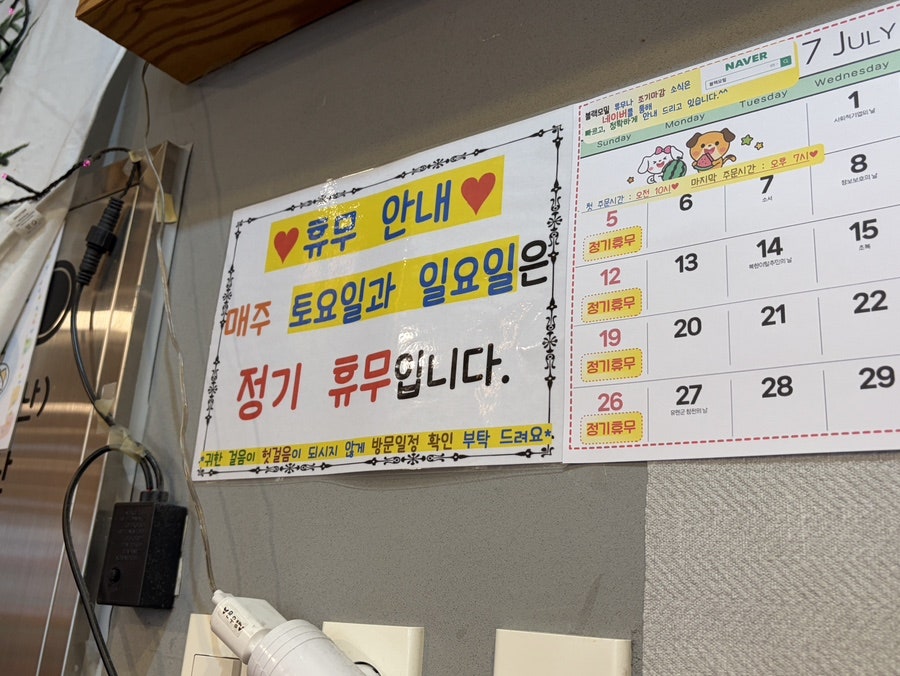 ♥휴무 안내♥
매주 토요일과 일요일은
정기 휴무입니다.
*귀한 걸음이 헛걸음이 되시지 않게 방문일정 확인 부탁 드려요*
NAVER
블랙모밀
7 JULY
블랙모밀 휴무나 조기마감 소식은
네이버를 통해
빠르고, 정확하게 안내 드리고 있습니다.^^
Sunday Monday Tuesday Wednesday
첫 주문시간 : 오전 10시♥ 마지막 주문시간 : 오후 7시♥
1
사회적기업의 날
5 6 7 8
정기휴무 소서 정보보호의 날
12 13 14 15
정기휴무 북한이탈주민의 날 초복
19 20 21 22
정기휴무
26 27 28 29
정기휴무 유엔군 참전의 날